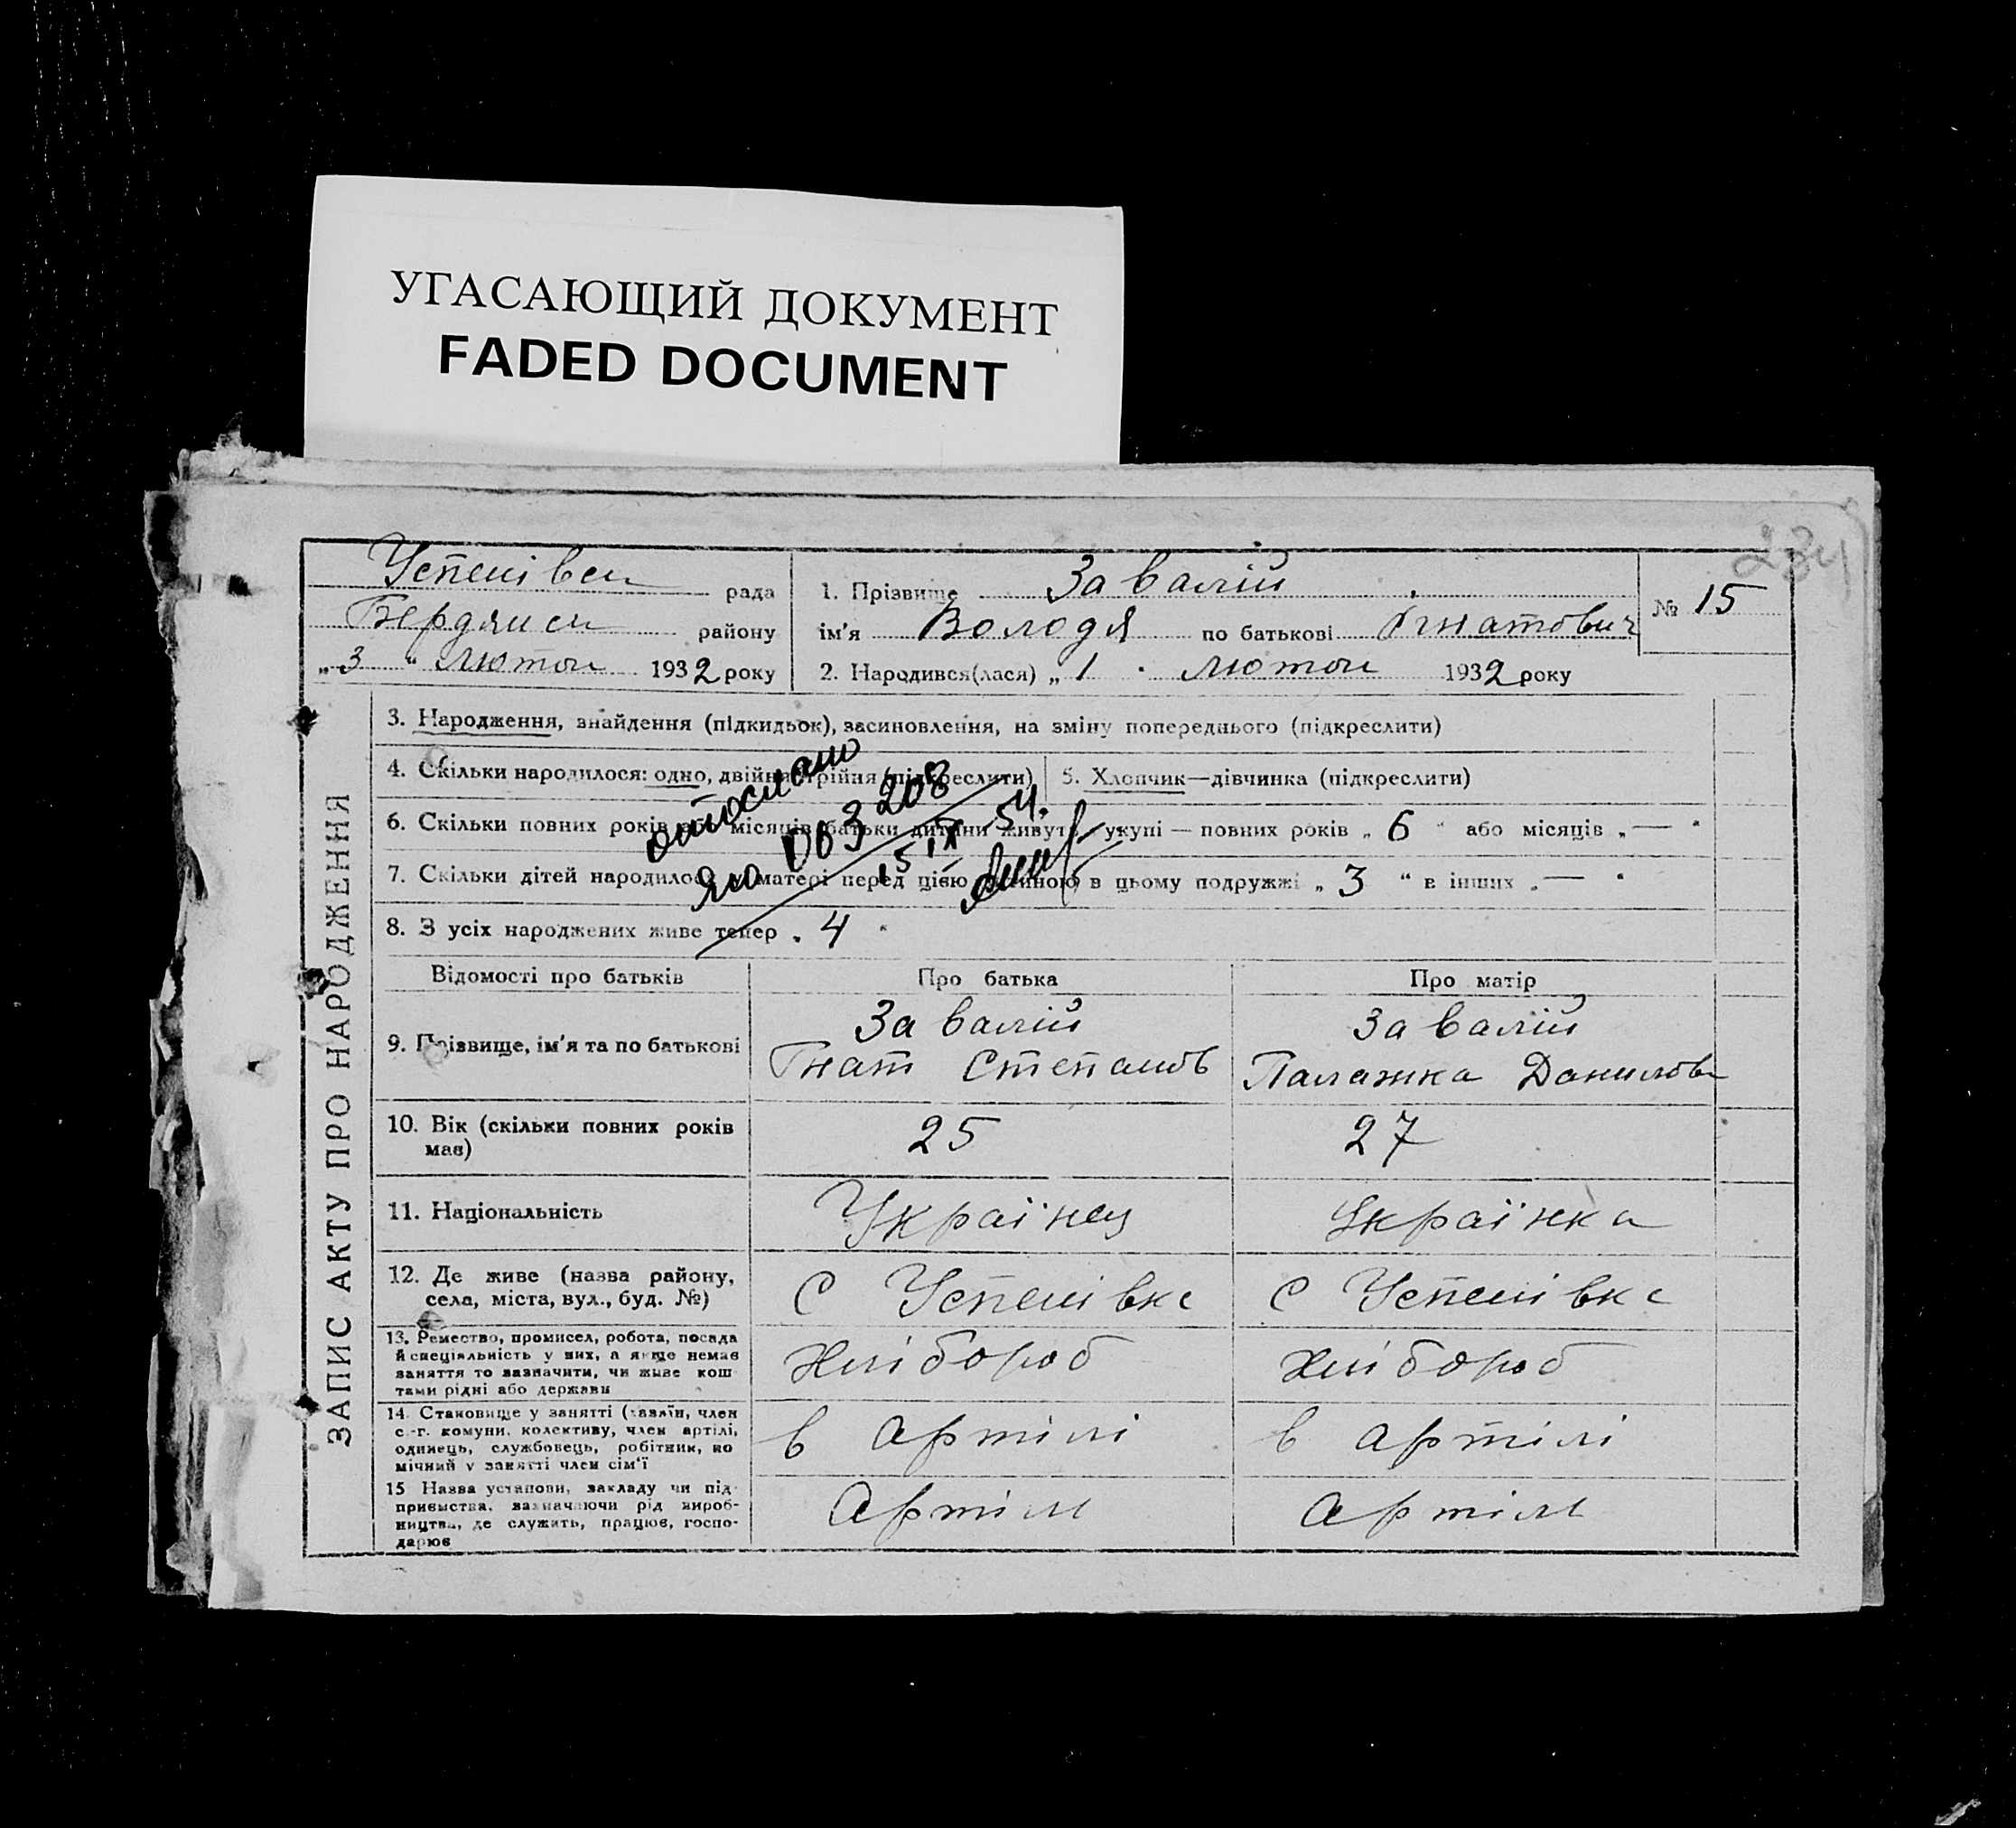 УГАСАЮЩИЙ ДОКУМЕНТ
FADED DOCUMENT
234
Успенівсь рада
Бердянсь району
„ 3 “ Лютого 1932 року
1. Прізвище Завалій
ім'я Володя по батькові Ігнатович
2. Народився(лася) „ 1 " Лютого 1932 року
№ 15
ЗАПИС АКТУ ПРО НАРОДЖЕННЯ
3. Народження, знайдення (підкидьок), засиновлення, на зміну попереднього (підкреслити)
4. Скільки народилося: одно, двійня, трійня (підкреслити)
5. Хлопчик—дівчинка (підкреслити)
6. Скільки повних років або місяців батьки дитини живуть укупі — повних років „ 6 “ або місяців „ — "
7. Скільки дітей народилось у матері перед цією дитиною в цьому подружжі „ 3 “ в інших „ — "
8. З усіх народжених живе тепер „ 4 "
208
15 IX 54.
Відомості про батьків
Про батька
Про матір
9. Прізвище, ім'я та по батькові
Завалій
Гнат Степанов
Завалій
Палажка Данилов
10. Вік (скільки повних років
має)
25
27
11. Національність
Українец
Українка
12. Де живе (назва району,
села, міста, вул., буд. №)
С Успенівка
С Успенівка
13. Ремество, промисел, робота, посада
й спеціяльність у них, а якще немає
заняття то зазначити, чи живе кош
тами рідні або держави
Хлібороб
Хлібороб
14. Становище у занятті (хазяїн, член
с.-г. комуни, колективу, член артілі,
одинець, службовець, робітник, по
мічний у занятті член сім'ї
в артілі
в артілі
15 Назва установи, закладу чи під-
приємства, зазначаючи рід вироб-
ництва, де служить, працює, госпо-
дарює
Артіль
Артіль